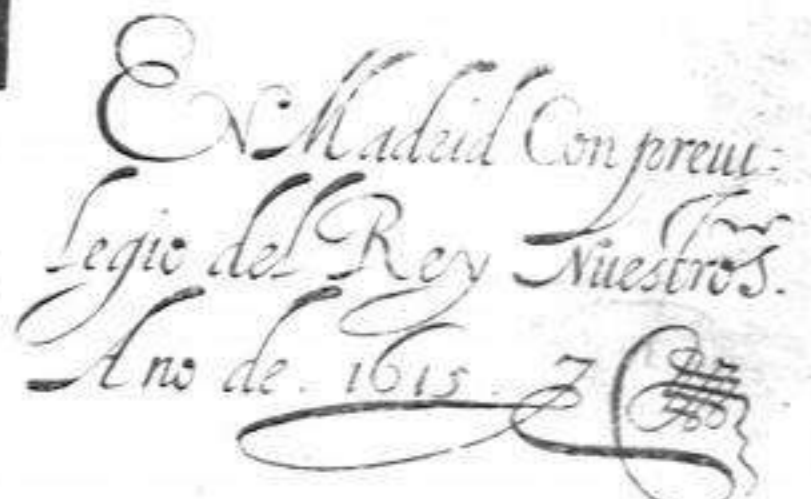 En Madrid Con preui-
legio del Rey Nuestro S.
Ano de. 1615.